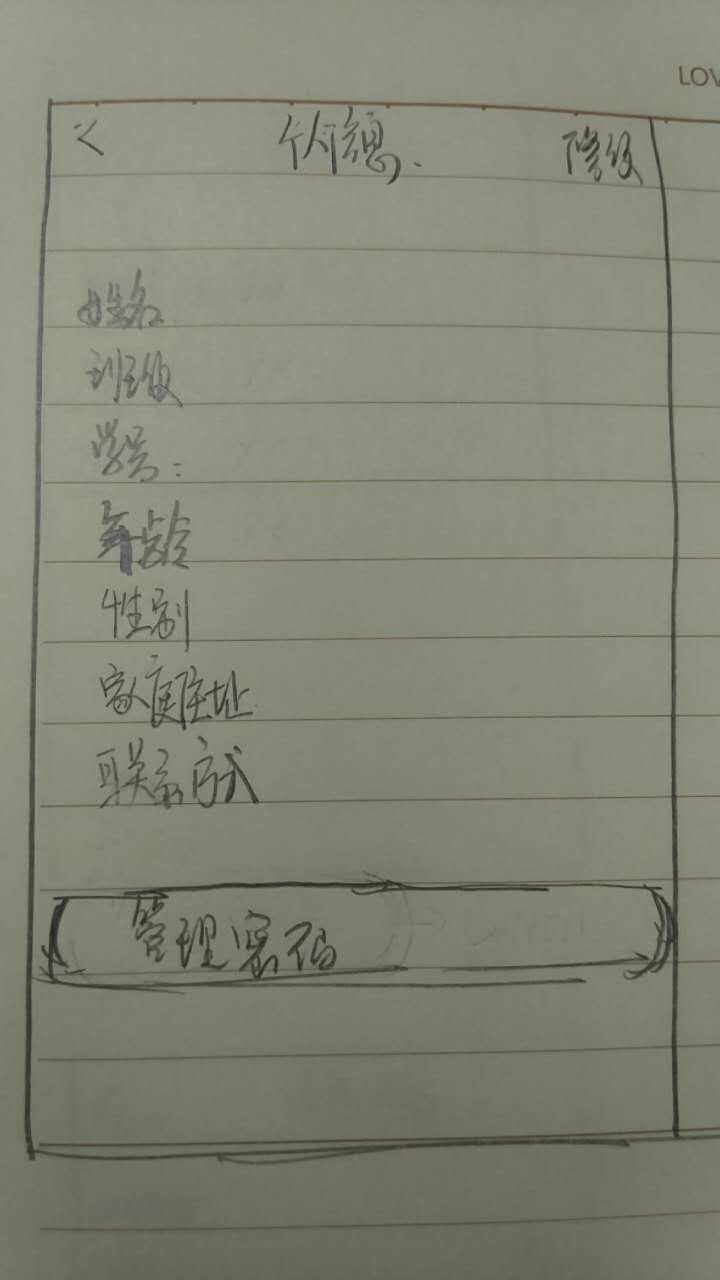 LOV
< 个人信息.
姓名
班级
学号:
年龄
性别
家庭住址
联系方式
管理密码